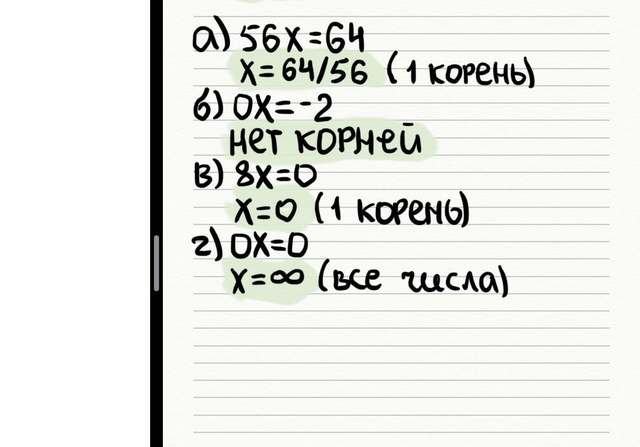 а) 56x=64
x=64/56 (1 корень)
б) 0x=-2
нет корней
в) 8x=0
x=0 (1 корень)
г) 0x=0
x=∞ (все числа)